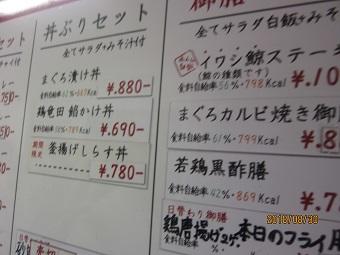 丼ぶりセット
全てサラダ+みそ汁付
まぐろ漬け丼
食料自給率62%・667Kcal
¥.880-
鶏竜田 餡かけ丼
¥.690-
期間限定
釜揚げしらす丼
¥.780-
御膳
全てサラダ白飯+みそ
イワシ鯨ステー
(鯨の種類です)
食料自給率56%・798Kcal
まぐろカルビ焼き御
食料自給率61%・799Kcal
若鶏黒酢膳
食料自給率42%・869Kcal
日替わり御膳
鶏唐揚げ
本日のフライ
2018/08/30